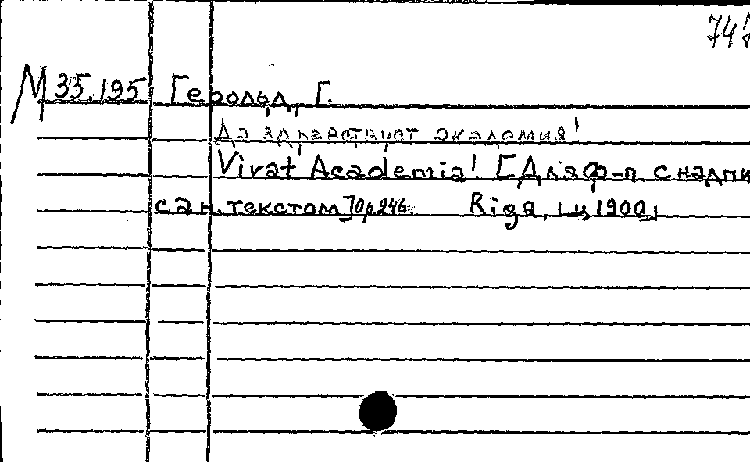 747
М 35.195 Герольд, Г.
Да здравствует академия!
Vivat Academia! [Для ф-п. с надпи
сан. текстом] Op. 246. Riga, [ц. 1900]